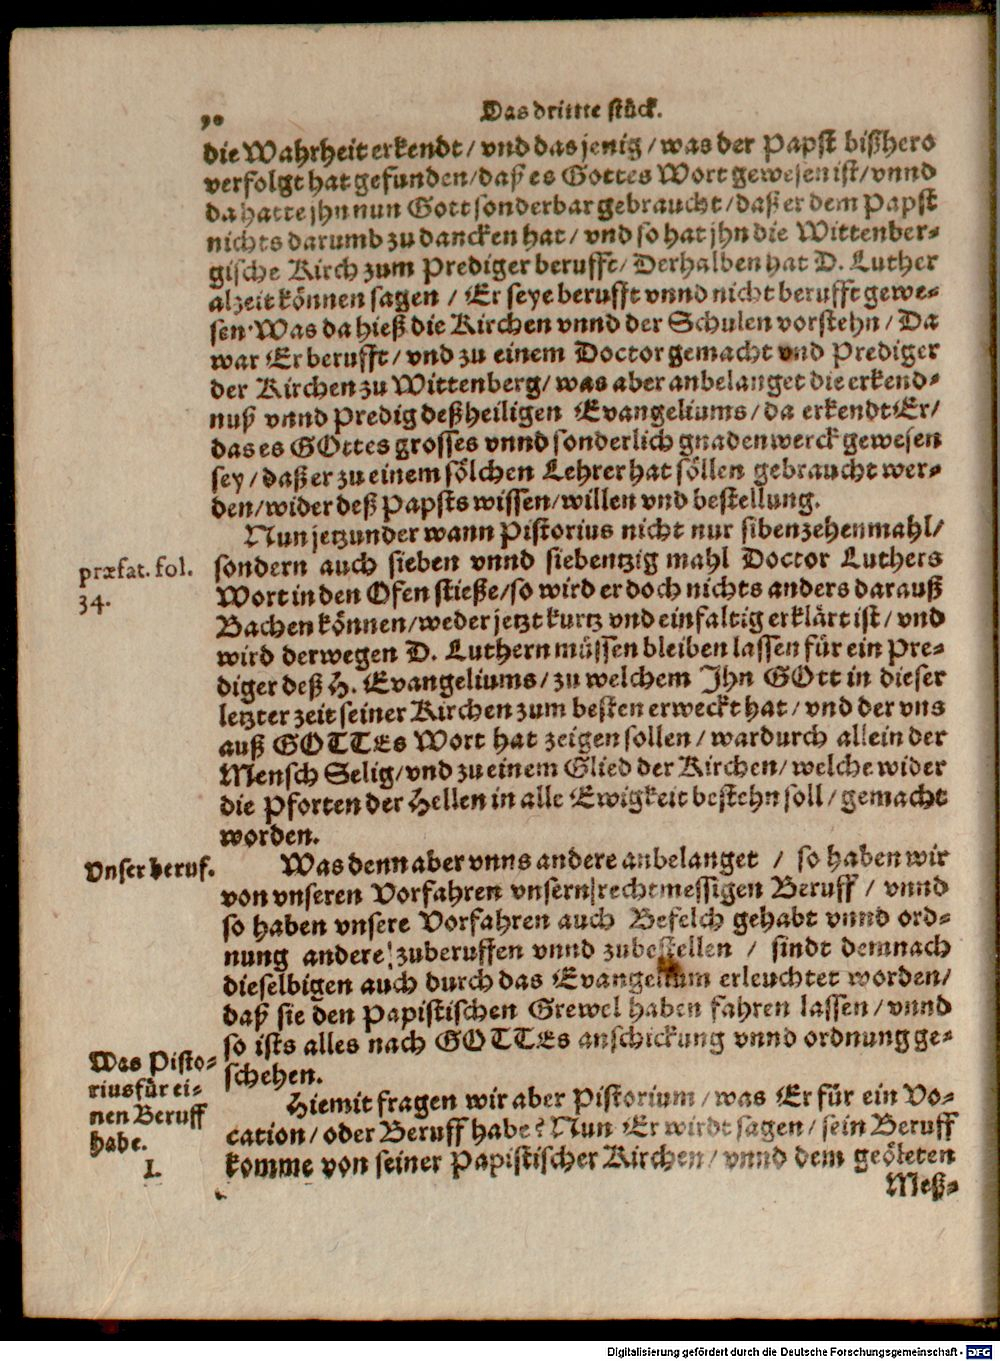 90
Das dritte stück.
die Wahrheit erkendt / vnd das jenig / was der Papst bißhero
verfolgt hat gefunden / daß es Gottes Wort gewesen ist / vnnd
da hatte jhn nun Gott sonderbar gebraucht / daß er dem Papst
nichts darumb zu dancken hat / vnd so hat jhn die Wittenber-
gische Kirch zum Prediger berufft / Derhalben hat D. Luther
alzeit können sagen / Er seye berufft vnnd nicht berufft gewe-
sen. Was da hieß die Kirchen vnnd der Schulen vorstehn / Da
war Er berufft / vnd zu einem Doctor gemacht vnd Prediger
der Kirchen zu Wittenberg / was aber anbelanget die erkend-
nuß vnnd Predig deß heiligen Evangeliums / da erkendt Er /
das es GOttes grosses vnnd sonderlich gnadenwerck gewesen
sey / daß er zu einem sölchen Lehrer hat söllen gebraucht wer-
den / wider deß Papsts wissen / willen vnd bestellung.
Nun jetzunder wann Pistorius nicht nur sibenzehenmahl /
præfat. fol.
34.
sondern auch sieben vnnd siebentzig mahl Doctor Luthers
Wort in den Ofen stieße / so wird er doch nichts anders darauß
Bachen können / weder jetzt kurtz vnd einfaltig erklärt ist / vnd
wird derwegen D. Luthern müssen bleiben lassen für ein Pre-
diger deß H. Evangeliums / zu welchem Jhn GOtt in dieser
letzter zeit seiner Kirchen zum besten erweckt hat / vnd der vns
auß GOTTEs Wort hat zeigen sollen / wardurch allein der
Mensch Selig / vnd zu einem Glied der Kirchen / welche wider
die Pforten der Hellen in alle Ewigkeit bestehn soll / gemacht
worden.
Vnser beruf.
Was denn aber vnns andere anbelanget / so haben wir
von vnseren Vorfahren vnsern rechtmessigen Beruff / vnnd
so haben vnsere Vorfahren auch Befelch gehabt vnnd ord-
nung andere zuberuffen vnnd zubestellen / sindt demnach
dieselbigen auch durch das Evangelium erleuchtet worden /
daß sie den Papistischen Grewel haben fahren lassen / vnnd
so ists alles nach GOTTEs anschickung vnnd ordnung ge-
schehen.
Was Pisto-
rius für ei-
nen Beruff
habe.
1.
Hiemit fragen wir aber Pistorium / was Er für ein Vo-
cation / oder Beruff habe? Nun Er wirdt sagen / sein Beruff
komme von seiner Papistischer Kirchen / vnnd dem geöleten
Meß-
Digitalisierung gefördert durch die Deutsche Forschungsgemeinschaft - DFG